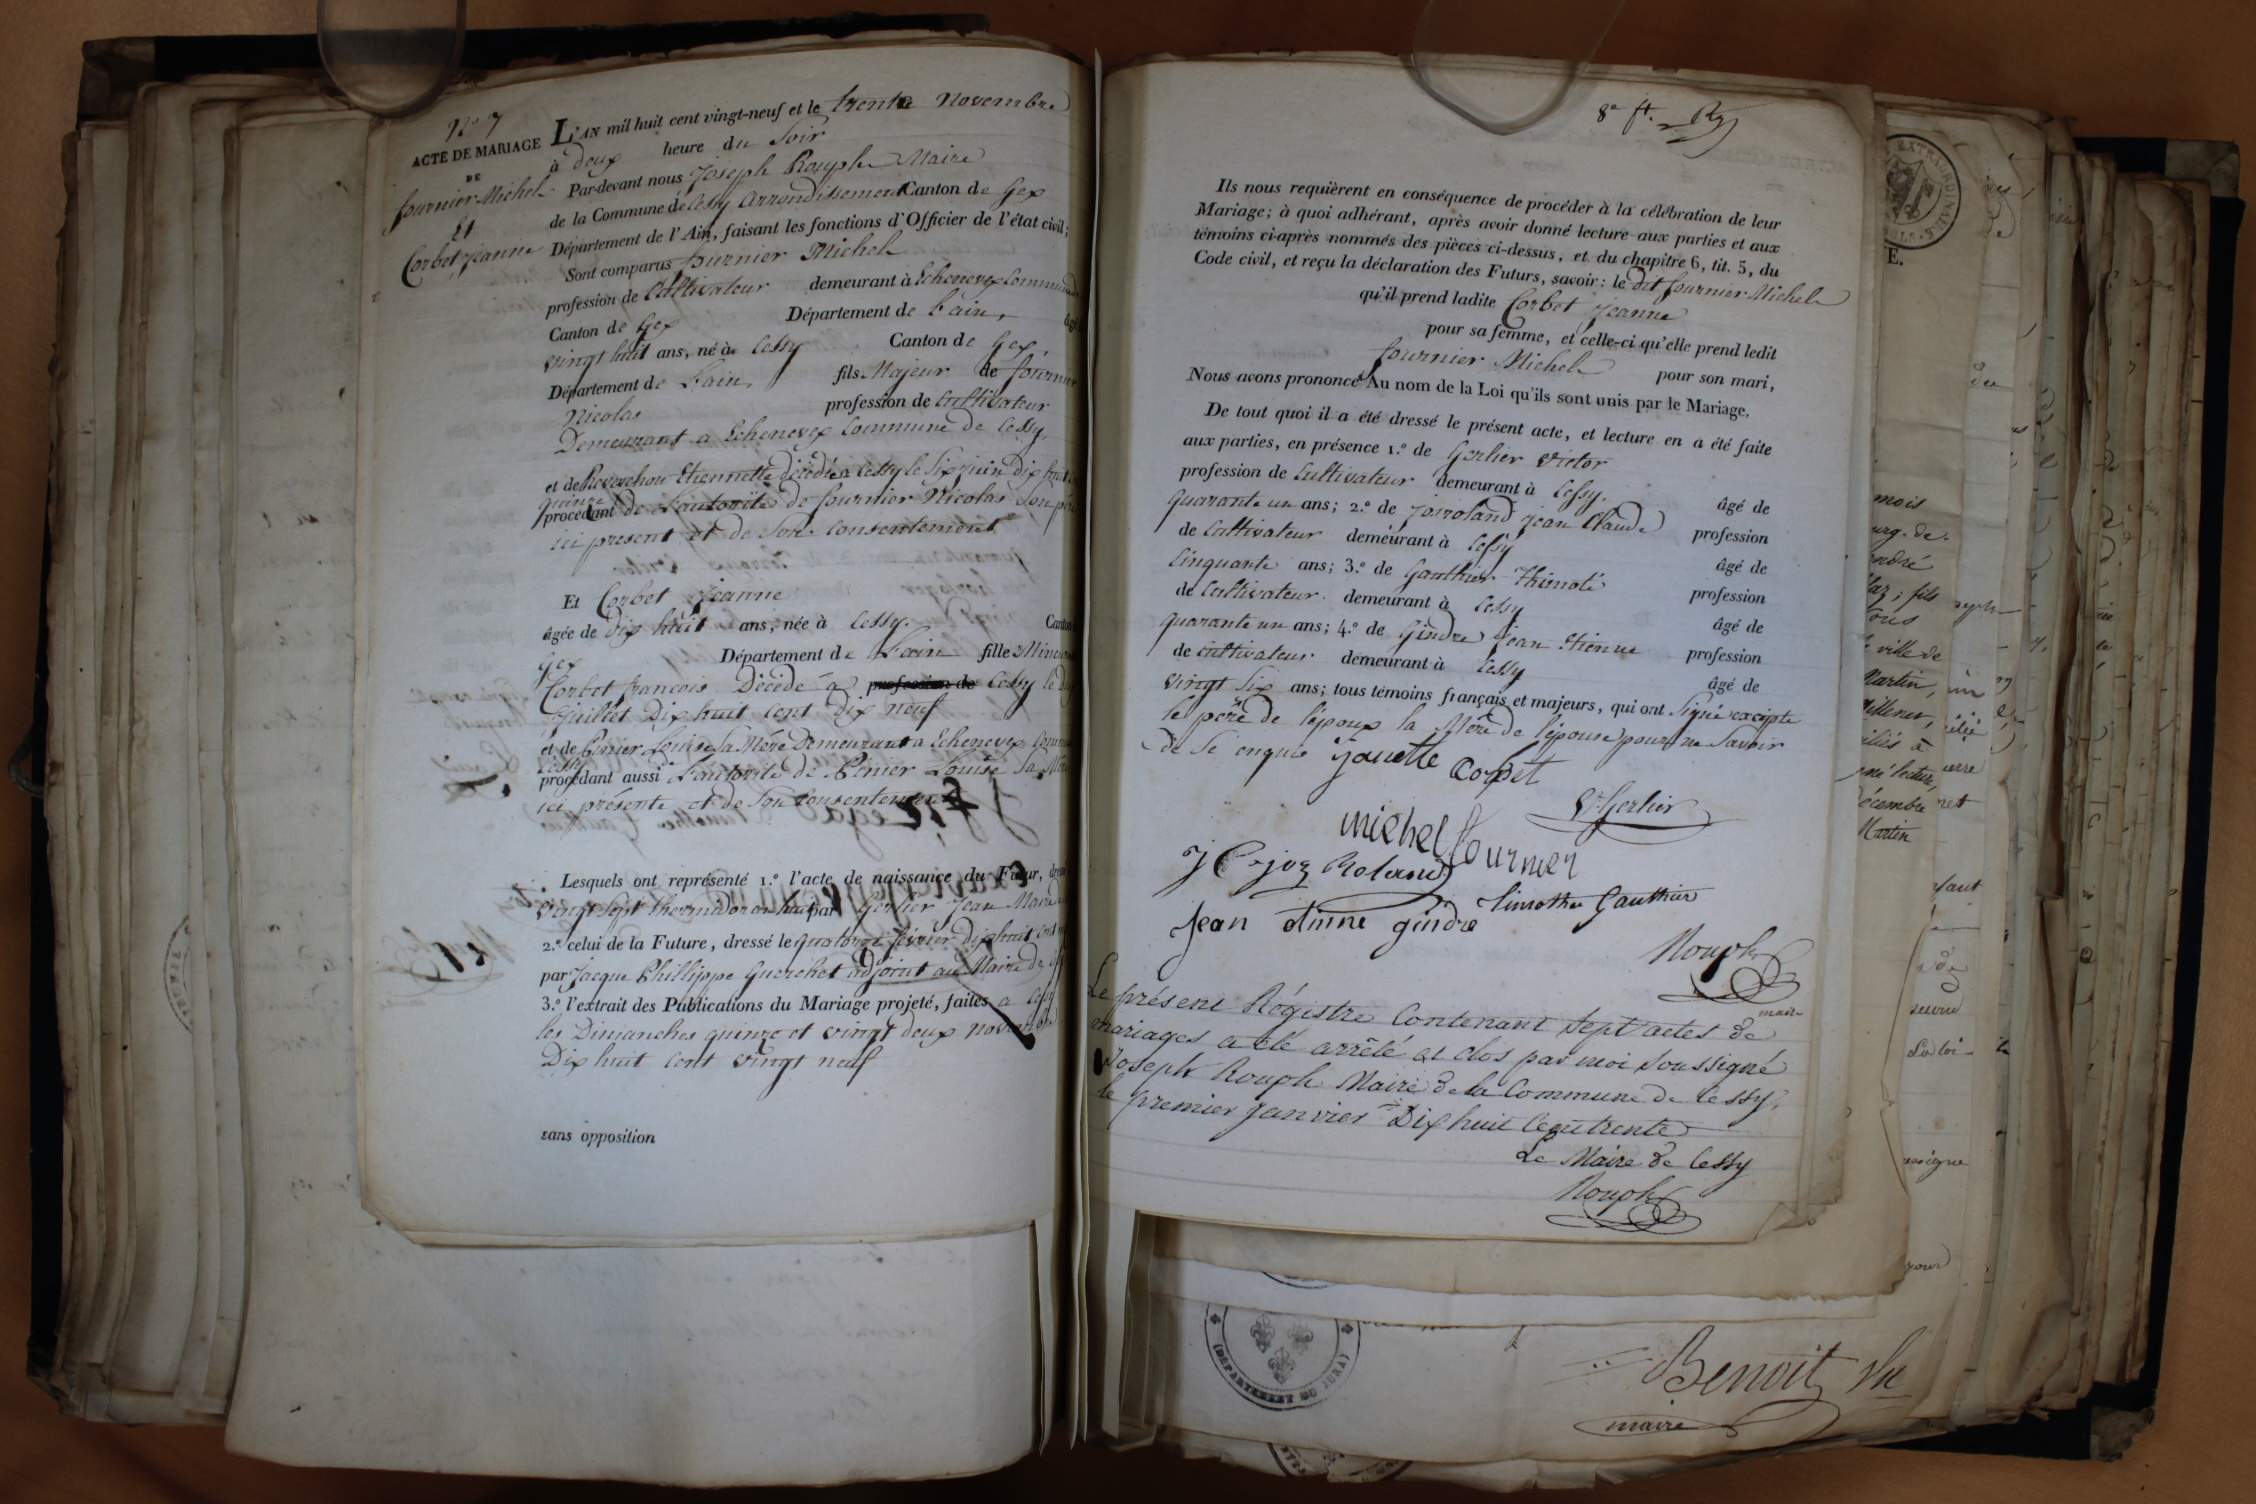 N° 7
ACTE DE MARIAGE
DE
fournier Michel
Et
Corbet Jeanne
L'AN mil huit cent vingt-neuf et le trente Novembre
à deux heure du Soir
Par-devant nous Joseph Rouph Maire
de la Commune de Cessy Arrondissement Canton de Gex
Département de l'Ain, faisant les fonctions d'Officier de l'état civil;
Sont comparus fournier Michel
profession de Cultivateur demeurant à Echenevex Commune
Canton de Gex Département de l'ain, âgé
vingt huit ans, né à Cessy Canton de Gex,
Département de l'ain, fils Majeur de fournier
Nicolas profession de Cultivateur
Demeurant a Echenevex Commune de Cessy,
et de Etiennette décédée a Cessy le Six juin dix huit
quinze
procédant de L'autorité de fournier Nicolas Son père
ici present et de Son Consentement
Et Corbet Jeanne
âgée de dix huit ans, née à Cessy. Canton
Gex Département de l'ain fille Mineure
Corbet francois Décédé à profession de Cessy le
Juillet Dix huit Cent Dix neuf
et de Pinier Louise la Mère Demeurant a Echenevex Commune
Cessy
procédant aussi L'autorité de Pinier Louise Sa Mère
ici présente et de Son Consentement
Lesquels ont représenté 1.° l'acte de naissance du Futur, dressé
vingt Sept thermidor an huit par Gerlier Jean Maire
2.° celui de la Future, dressé le quatorze février Dix huit cent
par Jacque Phillippe Guerchet adjoint au Maire de
3.° l'extrait des Publications du Mariage projeté, faites a Cessy
les Dimanches quinze et vingt deux novembre
Dix huit Cent vingt neuf
sans opposition
8e ft.
Ils nous requièrent en conséquence de procéder à la célébration de leur
Mariage; à quoi adhérant, après avoir donné lecture aux parties et aux
témoins ci-après nommés des pièces ci-dessus, et du chapitre 6, tit. 5, du
Code civil, et reçu la déclaration des Futurs, savoir: le dit fournier Michel
qu'il prend ladite Corbet Jeanne
pour sa femme, et celle-ci qu'elle prend ledit
fournier Michel pour son mari,
Nous avons prononcé Au nom de la Loi qu'ils sont unis par le Mariage,
De tout quoi il a été dressé le présent acte, et lecture en a été faite
aux parties, en présence 1.° de Gerlier Victor
profession de Cultivateur demeurant à Cessy. âgé de
quarante un ans; 2.° de joiroland jean Claude profession
de Cultivateur demeurant à Cessy âgé de
Cinquante ans; 3.° de Gauthier Thimoté profession
de Cultivateur demeurant à Cessy âgé de
quarante un ans; 4.° de Gindre jean Etienne profession
de Cultivateur demeurant à Cessy âgé de
vingt Six ans; tous témoins français et majeurs, qui ont Signé excepte
le père de l'époux la Mère de l'épouse pour ne Savoir
de Se enquis janette Corbet
Vr Gerlier
michel fournier
J C joz Roland
Timothee Gauthier
jean etinne gindre
Rouph
maire
Le présent Régistre Contenant Sept actes de
mariages a été arrêté et clos par moi Soussigné
Joseph Rouph Maire de la Commune de Cessy,
le premier Janvier Dix huit Cent trente
Le Maire de Cessy
Rouph
E.
mois
fils
ville de
Martin,
lecture,
Martin
(DÉPARTEMENT DU JURA)
Benoit
maire